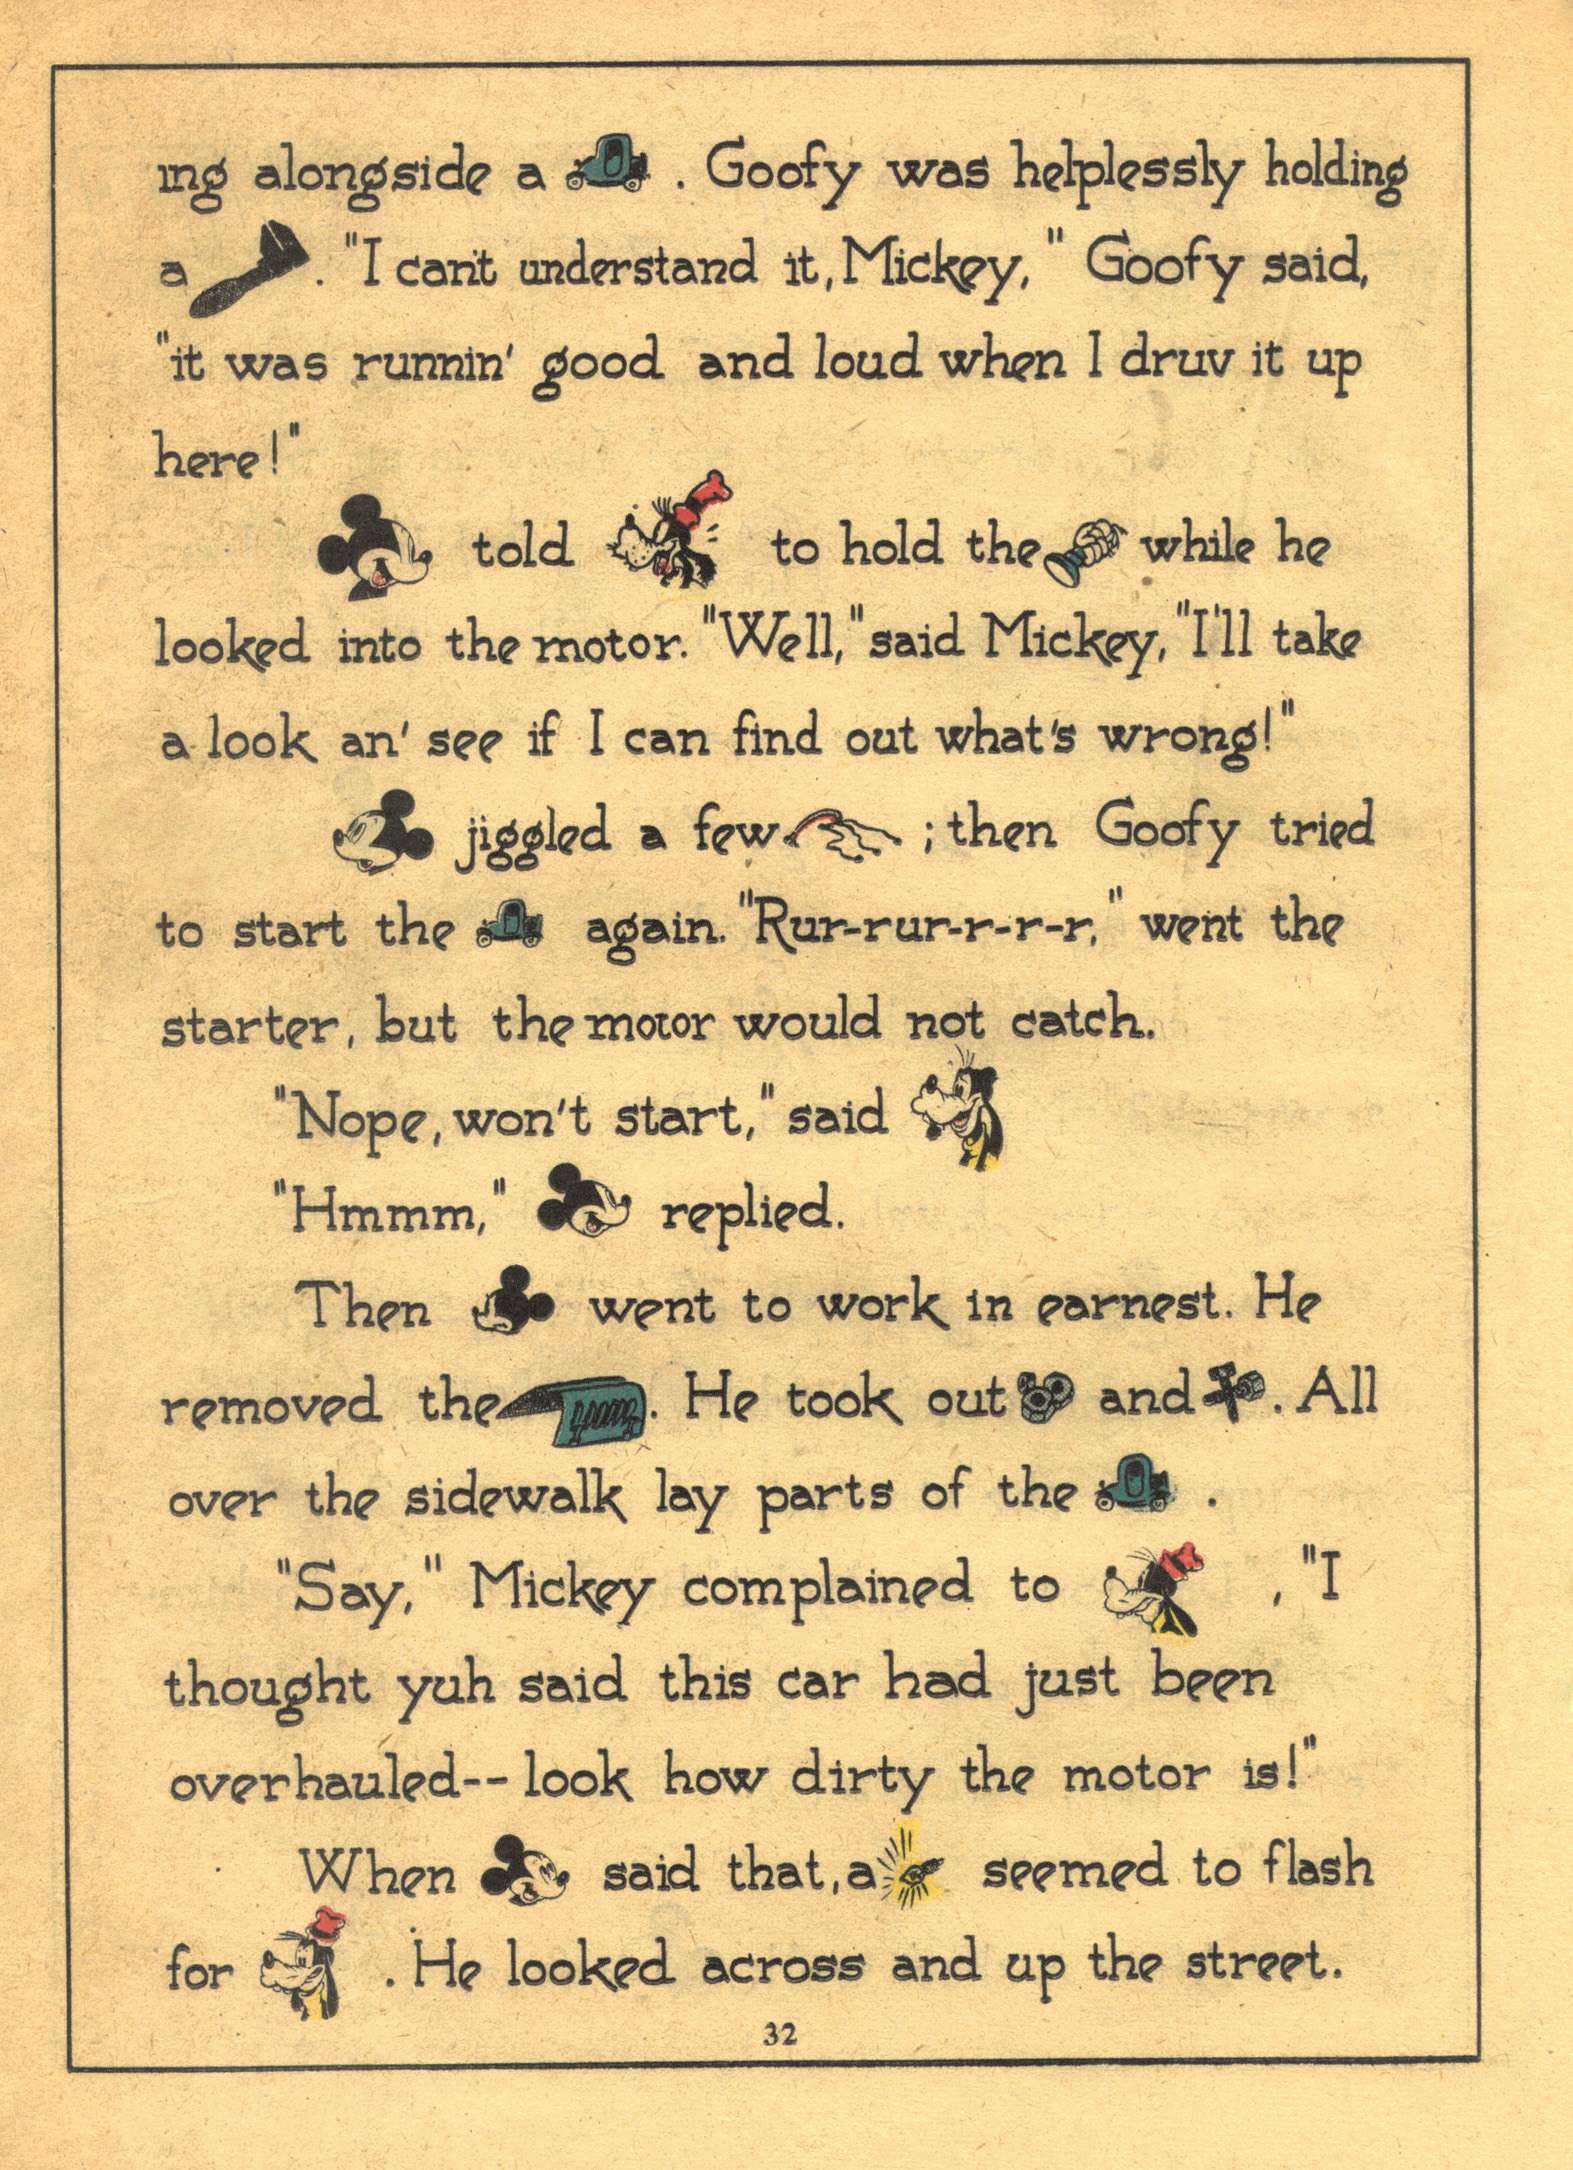 ing alongside a . Goofy was helplessly holding
a . "I can't understand it, Mickey," Goofy said,
"it was runnin' good and loud when I druv it up
here!"
told to hold the while he
looked into the motor. "Well," said Mickey, "I'll take
a look an' see if I can find out what's wrong!"
jiggled a few ; then Goofy tried
to start the again. "Rur-rur-r-r-r," went the
starter, but the motor would not catch.
"Nope, won't start," said
"Hmmm," replied.
Then went to work in earnest. He
removed the . He took out and . All
over the sidewalk lay parts of the .
"Say," Mickey complained to , "I
thought yuh said this car had just been
overhauled-- look how dirty the motor is!"
When said that, a seemed to flash
for . He looked across and up the street.
32